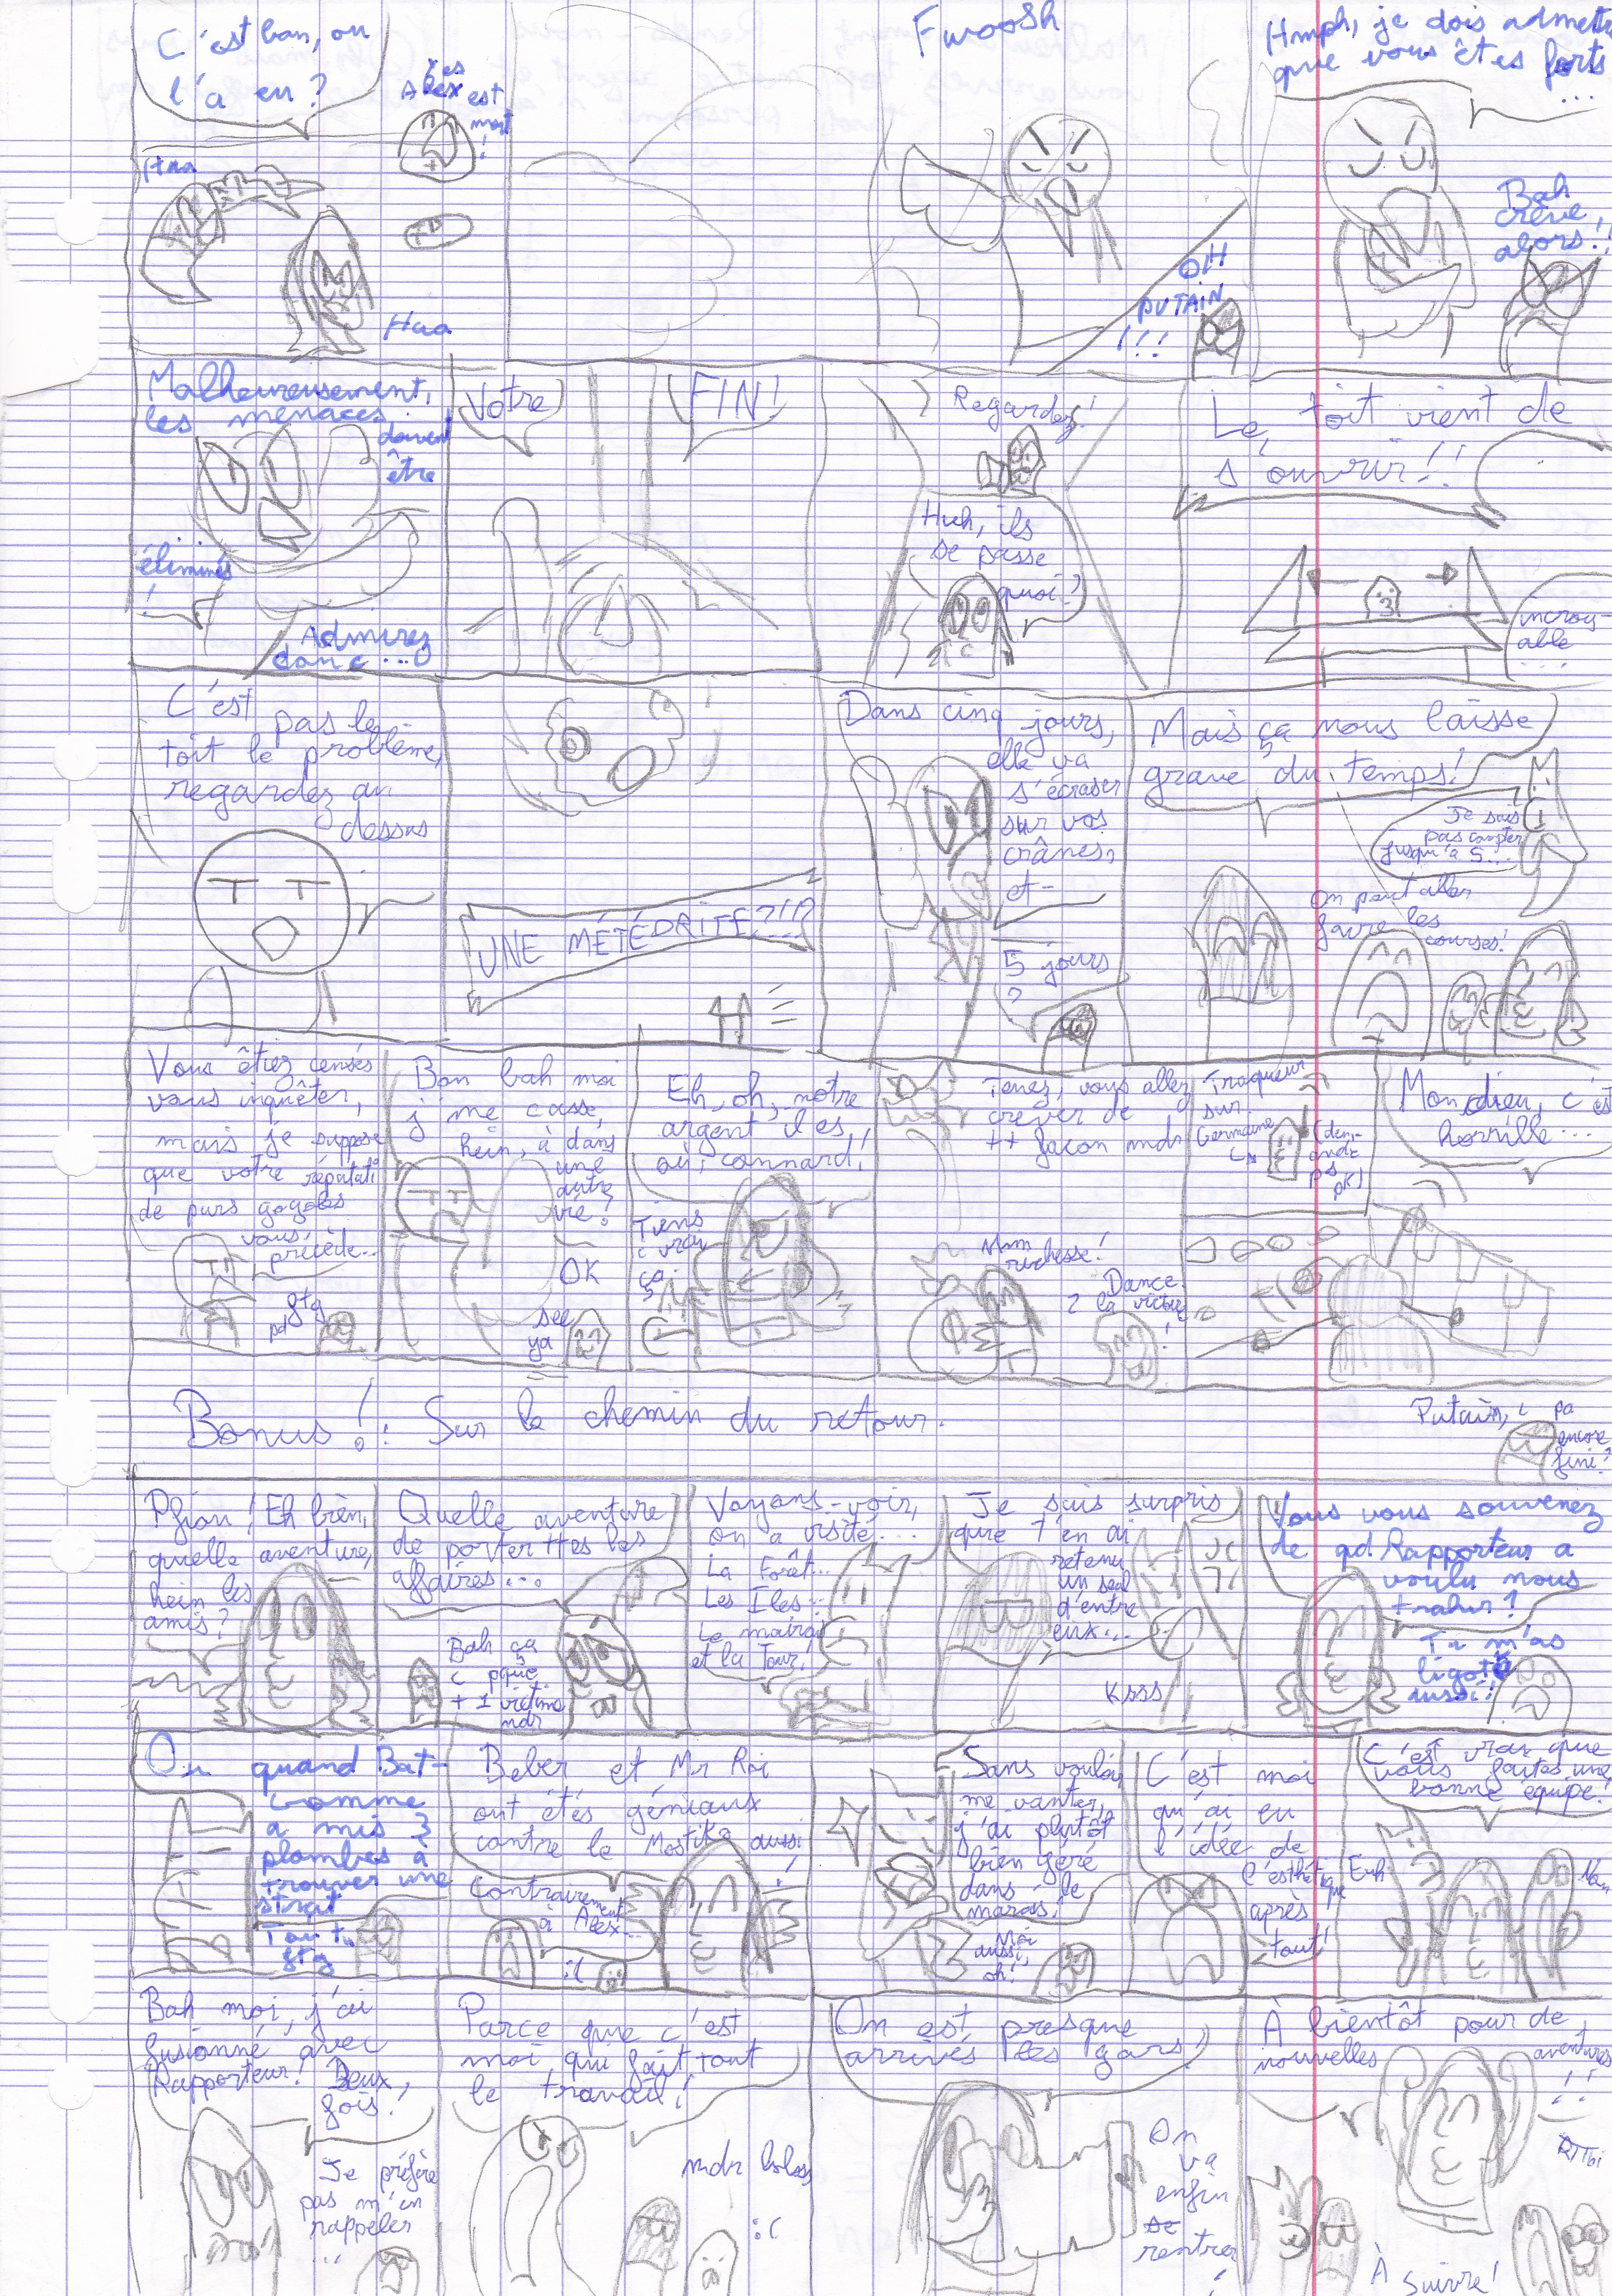 C'est bon, on
l'a eu ?
Alex est
mort
!
Haa
Haa
Fwoosh
OH
PUTAIN
!!!
Hmph, je dois admettre
que vous êtes forts
...
Bah
crève
alors!!
Malheureusement,
les menaces
doivent
être
éliminés
!
Admirez
donc...
Votre
FIN!
Regardez!
Huh, ils
se passe
quoi?
Le toit vient de
s'ouvrir!!
incroy-
able
...
C'est
pas le
toit le problème,
regardez au
dessus
UNE MÉTÉORITE?!!?
Dans cinq jours,
elle va
s'écraser
sur vos
crânes,
et-
5 jours
?
Mais ça nous laisse
grave du temps!
Je sais
pas compter
jusqu'à 5...
On peut aller
faire les
courses!
Vous êtiez censés
vous inquiéter,
mais je suppose
que votre réputati
de purs gogoles
vous
précède...
stg
pd
Bon bah moi
j'me casse,
hein, à dans
une
autre
vie?
OK
see
ya
Eh, oh, notre
argent il es,
où, connard!
Tiens
c vrai
ça
Tenez, vous allez
crever de
tt façon mdr
Mmm
richesse!
Dance
2 la victoire
!
Traqueur
sur
Germaine
(dem-
ande
pas
pk)
Mon dieu, c'est
horrible...
Bonus!: Sur le chemin du retour.
Putain, c pa
encore
fini?
Pfiou! Eh bien,
quelle aventure,
hein les
amis?
Quelle aventure
de porter ttes les
affaires...
Bah ça
c pque
+ 1 victime
mdr
Voyons-voir,
on a visité...
La Forêt...
Les Iles...
Le marais
et la Tour!
Je suis surpris
que t'en ai
retenu
un seul
d'entre
eux...
Ksss
Vous vous souvenez
de qd Rapporteur a
voulu nous
trahir?
Tu m'as
ligoté
aussi!
Ou quand Bat-
Gomme
a mis 3
plombes à
trouver une
strat
Beber et Mr Roi
ont étés géniaux
contre le Mastiko aussi
!
Contrairement
à Alex...
:(
Sans vouloir
me vanter,
j'ai plutôt
bien géré
dans le
marais!
Moi
aussi,
oh!
C'est moi
qui ai eu
l'idée de
l'esthétique
après
tout!
C'est vrai que
vous faites une
bonne équipe!
Euh
Nan
Bah moi, j'ai
fusionné avec
Rapporteur! Deux
fois!
Je préfère
pas m'en
rappeler
...
Parce que c'est
moi qui fait tout
le travail!
mdr bolosse
:(
On est presque
arrivés les gars!
On
va
enfin
rentrer
!
À bientôt pour de
nouvelles
aventures
!!
À
suivre!